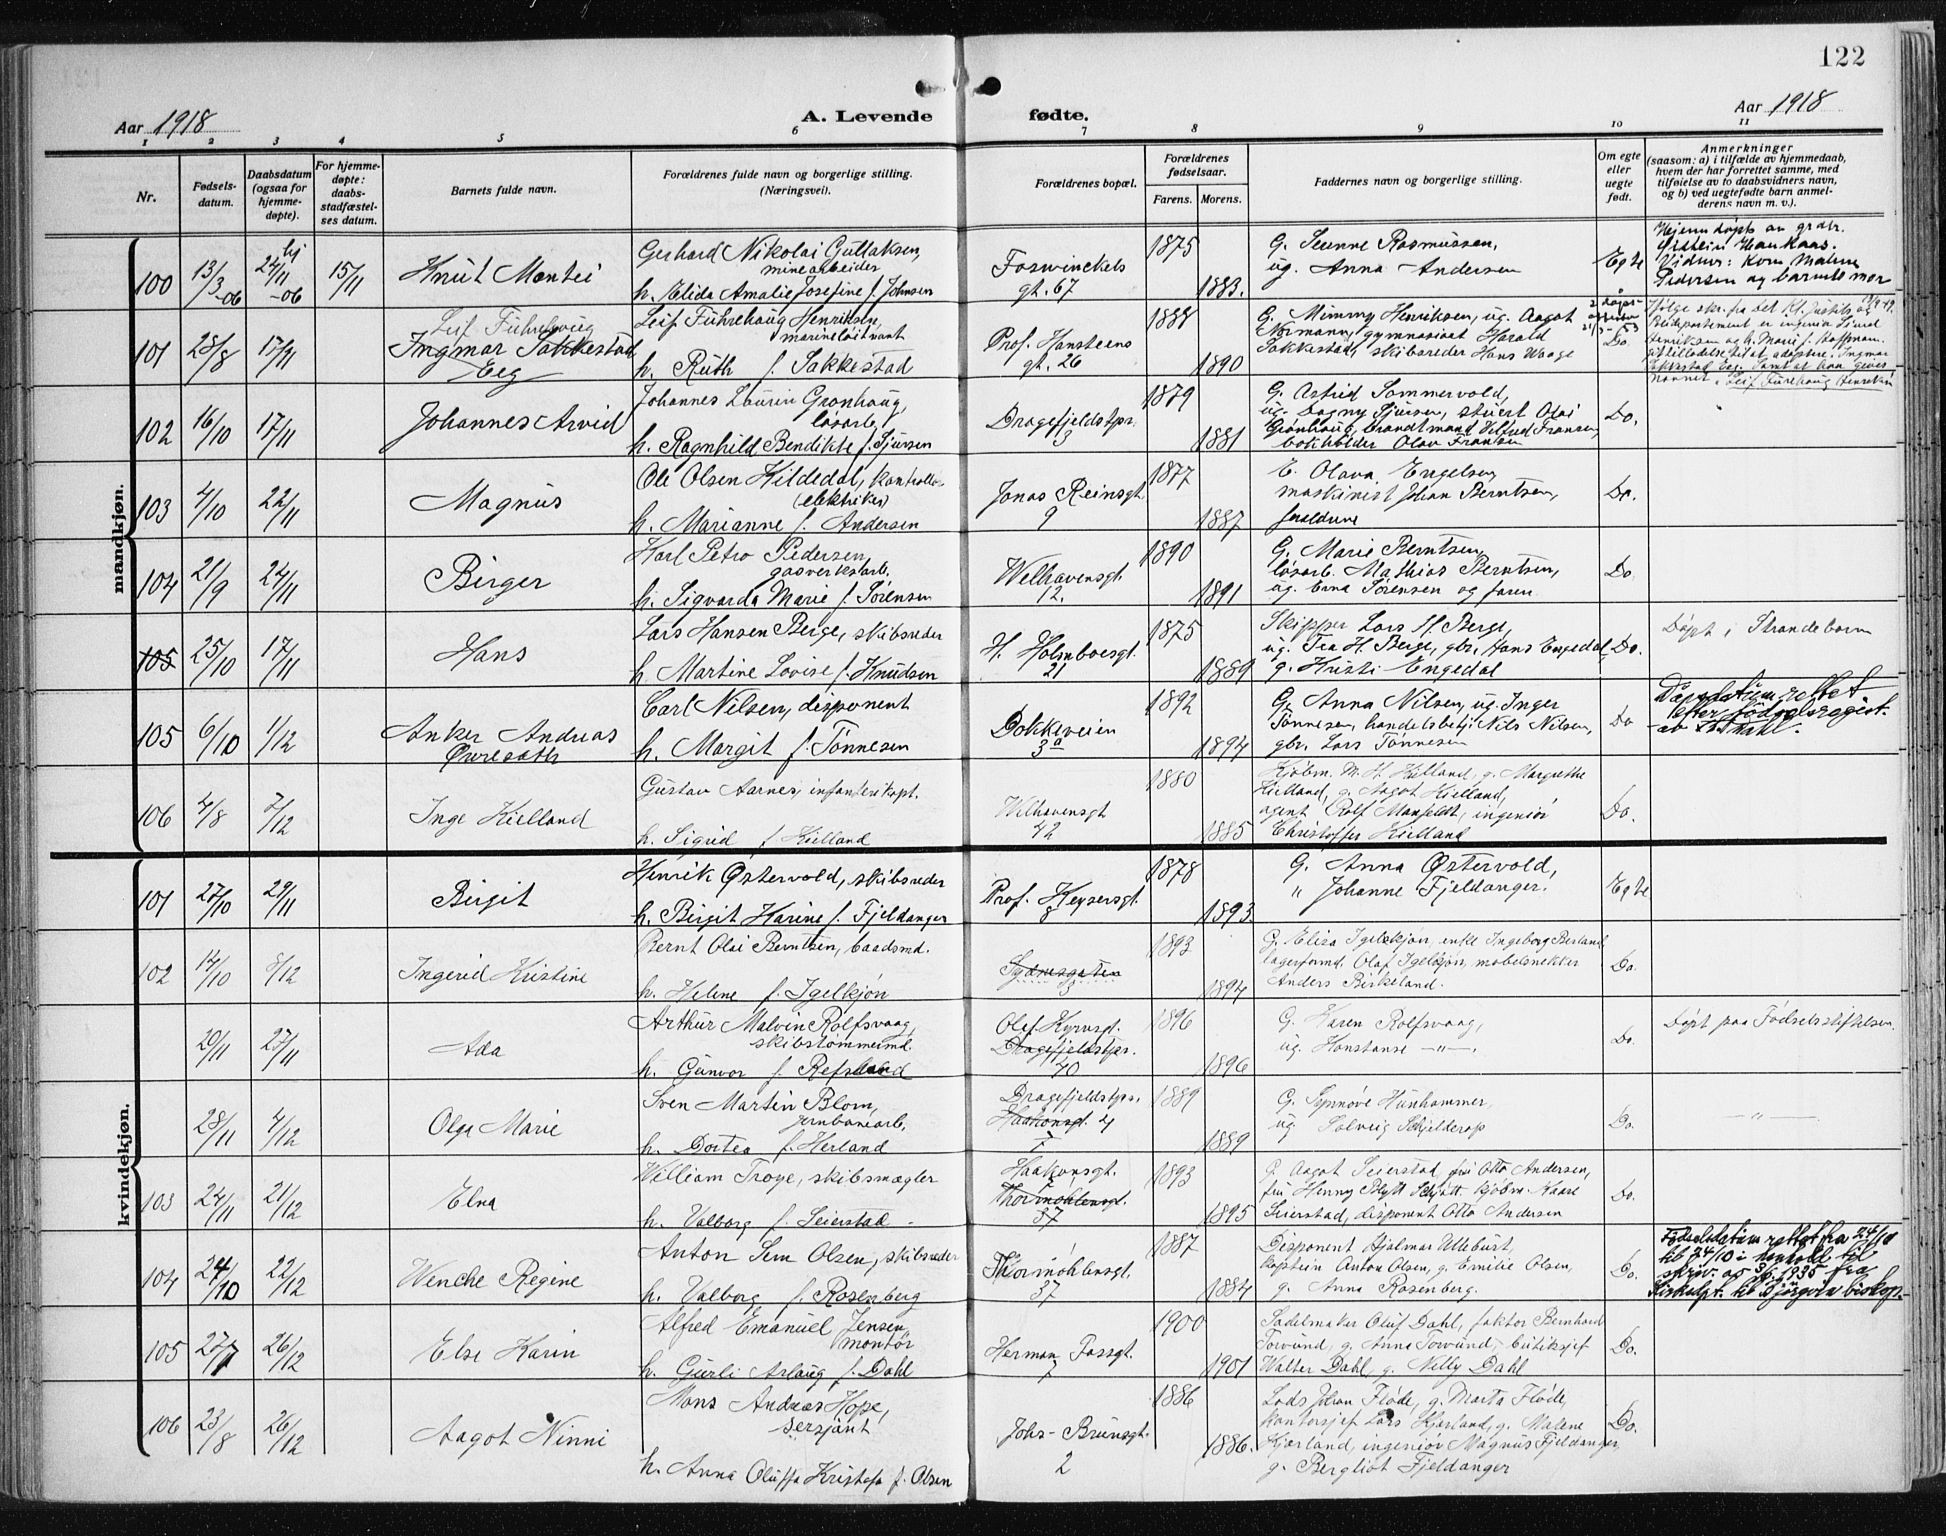 122
Aar 1918
A. Levende fødte.
Aar 1918
1 2 3 4 5 6 7 8 9 10 11
Nr.
Fødsels-
datum.
Daabsdatum
(ogsaa for
hjemme-
døpte).
For hjemme-
døpte:
daabs-
stadfæstel-
ses datum.
Barnets fulde navn.
Forældrenes fulde navn og borgerlige stilling.
(Næringsvei).
Forældrenes bopæl.
Forældrenes
fødselsaar.
Farens. Morens.
Faddernes navn og borgerlige stilling.
Om egte
eller
uegte
født.
Anmerkninger
(saasom: a) i tilfælde av hjemmedaab,
hvem der har forrettet samme, med
tilføielse av to daabsvidners navn,
og b) ved uegtefødte barn anmel-
derens navn m. v.).
mandkjøn.
100 13/3-06 hj 24/11-06 15/11 Knut Montei
Gerhard Nikolai Gullaksen,
minearbeider
h. Elida Amalie Josefine f. Johnsen
Foswinckels
gt. 67
1875 1883.
G. Seunne Rasmussen,
ug. Anna Andersen
Egte
Hjemmedøpt av
Øistein Haukaas.
Pedersen og barnets mor
101 28/8 17/11
Leif Führehoug
Ingmar Sakkestad
Eeg
Leif Führehoug Henriksen,
marineløitnant
h. Ruth f. Sakkestad
Prof. Hansteens
gt. 26
1888 1890
G. Mimmy Henriksen, ug. Aagot
Normann, gymnasiast Harald
Sakkestad, skibsreder Hans Waage
Do.
Ifølge skr. fra det Kl. Justits og
102 16/10 17/11 Johannes Arvid
Johannes Laurin Grønhaug,
løsarb.
h. Ragnhild Bendikte f. Sjursen
Dragefjeldstpr.
3
1879 1881
G. Astrid Sommervold,
ug. Dagny Sjursen, stuert Olai
Grønhaug, brandtmand Hilfred Fransen,
bokholder Olav Fransen
Do.
103 4/10 22/11 Magnus
Ole Olsen Kildedal, kontroll.
(elektriker)
h. Marianne f. Andersen
Jonas Reinsgt.
9
1877 1887
E. Olava Engelsen,
maskinist Johan Berntsen,
forældrene
Do.
104 21/9 24/11 Birger
Karl Petro Pedersen,
gasverksarb.
h. Sigvarda Marie f. Sørensen
Welhavensgt.
12.
1890 1891
G. Marie Berntsen,
løsarb. Mathias Berntsen,
ug. Erna Sørensen og faren.
Do.
105 25/10 17/11 Hans
Lars Hansen Berge, skibsreder
h. Martine Lovise f. Knudsen
H. Holmboesgt.
21
1875 1889
Skipper Lars H. Berge,
ug. Tea H. Berge, gbr. Hans Engedal,
g. Kristi Engedal
Do.
Døpt i Strandebarm
105 6/10 1/12 Anker Andreas
Øvresæth
Carl Nilsen, disponent
h. Margit f. Tønnesen
Dokkeveien
3a
1892 1894
G. Anna Nilsen, ug. Inger
Tønnesen, handelsbetj. Nils Nilsen,
gbr. Lars Tønnesen
Do
Daapsdatum rettet
efter fødselsregist.
106 4/8 7/12 Inge Kielland
Gustav Aarnes, infanterikapt.
h. Sigrid f. Kielland
Welhavensgt
42
1880 1885
Kjøbm. M. H. Kielland, g. Margrethe
Kielland, g. Aagot Kielland,
agent Rolf Mansfeldt, ingeniør
Christoffer Kielland
Do.
kvindekjøn.
101 27/10 29/11 Birgit
Henrik Østervold, skibsreder
h. Birgit Karine f. Fjeldanger
Prof. Keysersgt.
8
1878 1893
G. Anna Østervold,
" Johanne Fjeldanger.
Egte
102 14/10 8/12 Ingerid Kristine
Bernt Olai Berntsen, baadsmd.
h. Helene f. Igelkjøn
Sydnesgaten
3
1893 1894
G. Elisa Igelkjøn, enke Ingeborg Birkeland
lagerformd. Olaf Igelkjøn, møbelsnekker
Anders Birkeland.
Do.
20/11 27/11 Ada
Arthur Malvin Rolfsvaag,
skibstømmermd.
h. Gunvor f. Refsland
Olaf Kyrresgt.
Dragefjeldstpr.
70
1896 1896
G. Karen Rolfsvaag,
ug. Konstanse —"—.
Do.
Døpt paa Fødselsstiftelsen.
28/11 4/12 Olga Marie
Sven Martin Blom,
jernbanearb.
h. Dortea f. Herland
Dragefjeldstpr.
Haakonsgt. 4
7
1889 1889
G. Synnøve Hunhammer,
ug. Solveig Skjelderup
Do.
—"—
103 24/11 21/12 Elna
William Troye, skibsmægler
h. Valborg f. Seierstad
Haakonsgt.
7
Thormøhlensgt.
37
1893 1895
G. Aagot Seierstad, fru Otto Andersen,
fru Henny Blytt Schjøtt, kjøbm. Kaare
Seierstad, disponent Otto Andersen
Do.
104 24/10 22/12 Wenche Regine
Anton Sem Olsen, skibsreder
h. Valborg f. Rosenberg
Thormøhlensgt.
37
1887 1884
Disponent Hjalmar Ulleburst,
kaptein Anton Olsen, g. Emilie Olsen,
g. Anna Rosenberg.
Do.
Fødselsdatum rettet fra 24/10
til 24/10 i henhold til
skriv. af 3/1 1935 fra
Kirkedpt. til Bjørgvin biskop.
105 27/7 26/12 Else Karin
Alfred Emanuel Jensen
montør
h. Gurli Aslaug f. Dahl
Herman Fossgt.
7
1900 1901
Sadelmaker Oluf Dahl, faktor Bernhard
Torvund, g. Anna Torvund, butiksjef
Walter Dahl, g. Nelly Dahl
Do.
106 23/8 26/12 Aagot Ninni
Mons Andreas Hope,
sersjant
h. Anna Oluffa Kristofa f. Olsen
Johs. Brunsgt.
2
1886 1886.
Lods Johan Fløde, g. Marta Fløde,
kontorsjef Lars Kjørland, g. Malene
Kjørland, ingeniør Magnus Fjeldanger,
g. Bergliot Fjeldanger
Do.